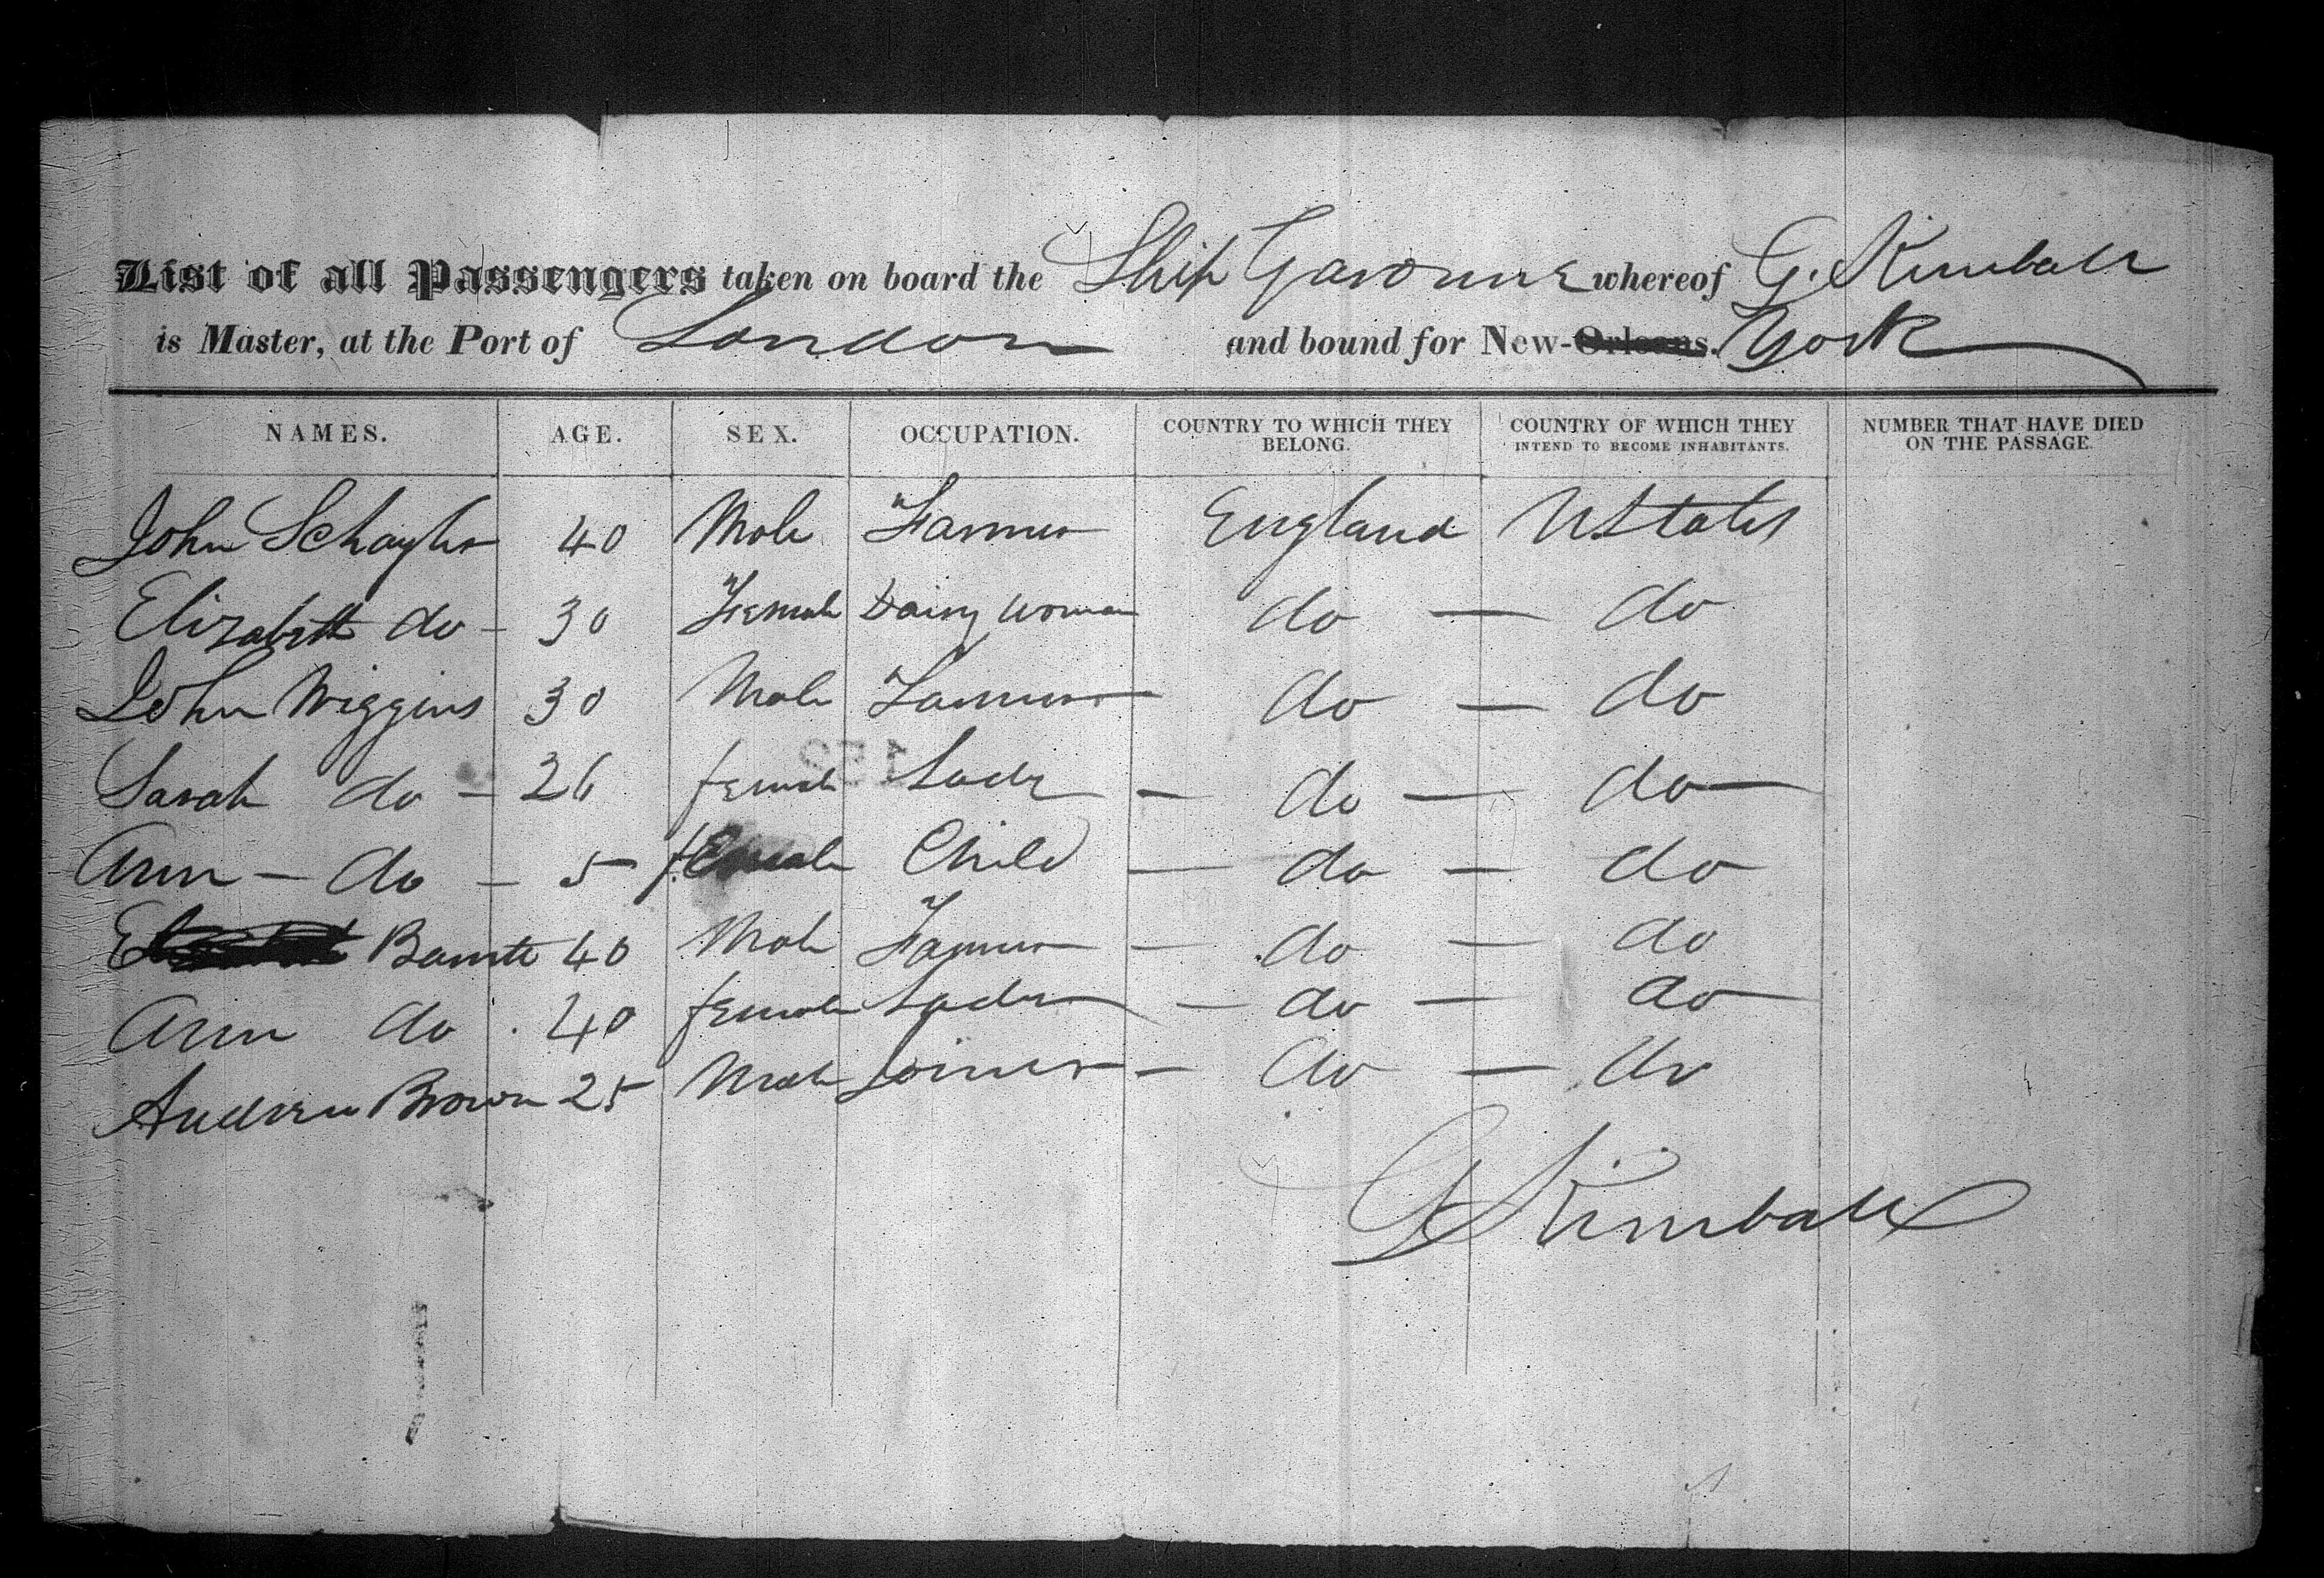 List of all Passengers taken on board the Ship Garonne whereof G. Kimball
is Master, at the Port of London and bound for New-Orleans. York
NAMES. AGE. SEX. OCCUPATION. COUNTRY TO WHICH THEY BELONG. COUNTRY OF WHICH THEY INTEND TO BECOME INHABITANTS. NUMBER THAT HAVE DIED ON THE PASSAGE.
John 40 Male Farmer England UStates
Elizabeth do - 30 Female Dairy woman do — do
John Wiggins 30 Male Farmer do — do
Sarah do - 26 female Lady - do — do
Ann - do - 5 female Child — do — do
E Barrett 40 Male Farmer - do — do
Ann do . 40 female Lady - do — do
Andrew Brown 25 Male Joiner - do — do
G Kimball